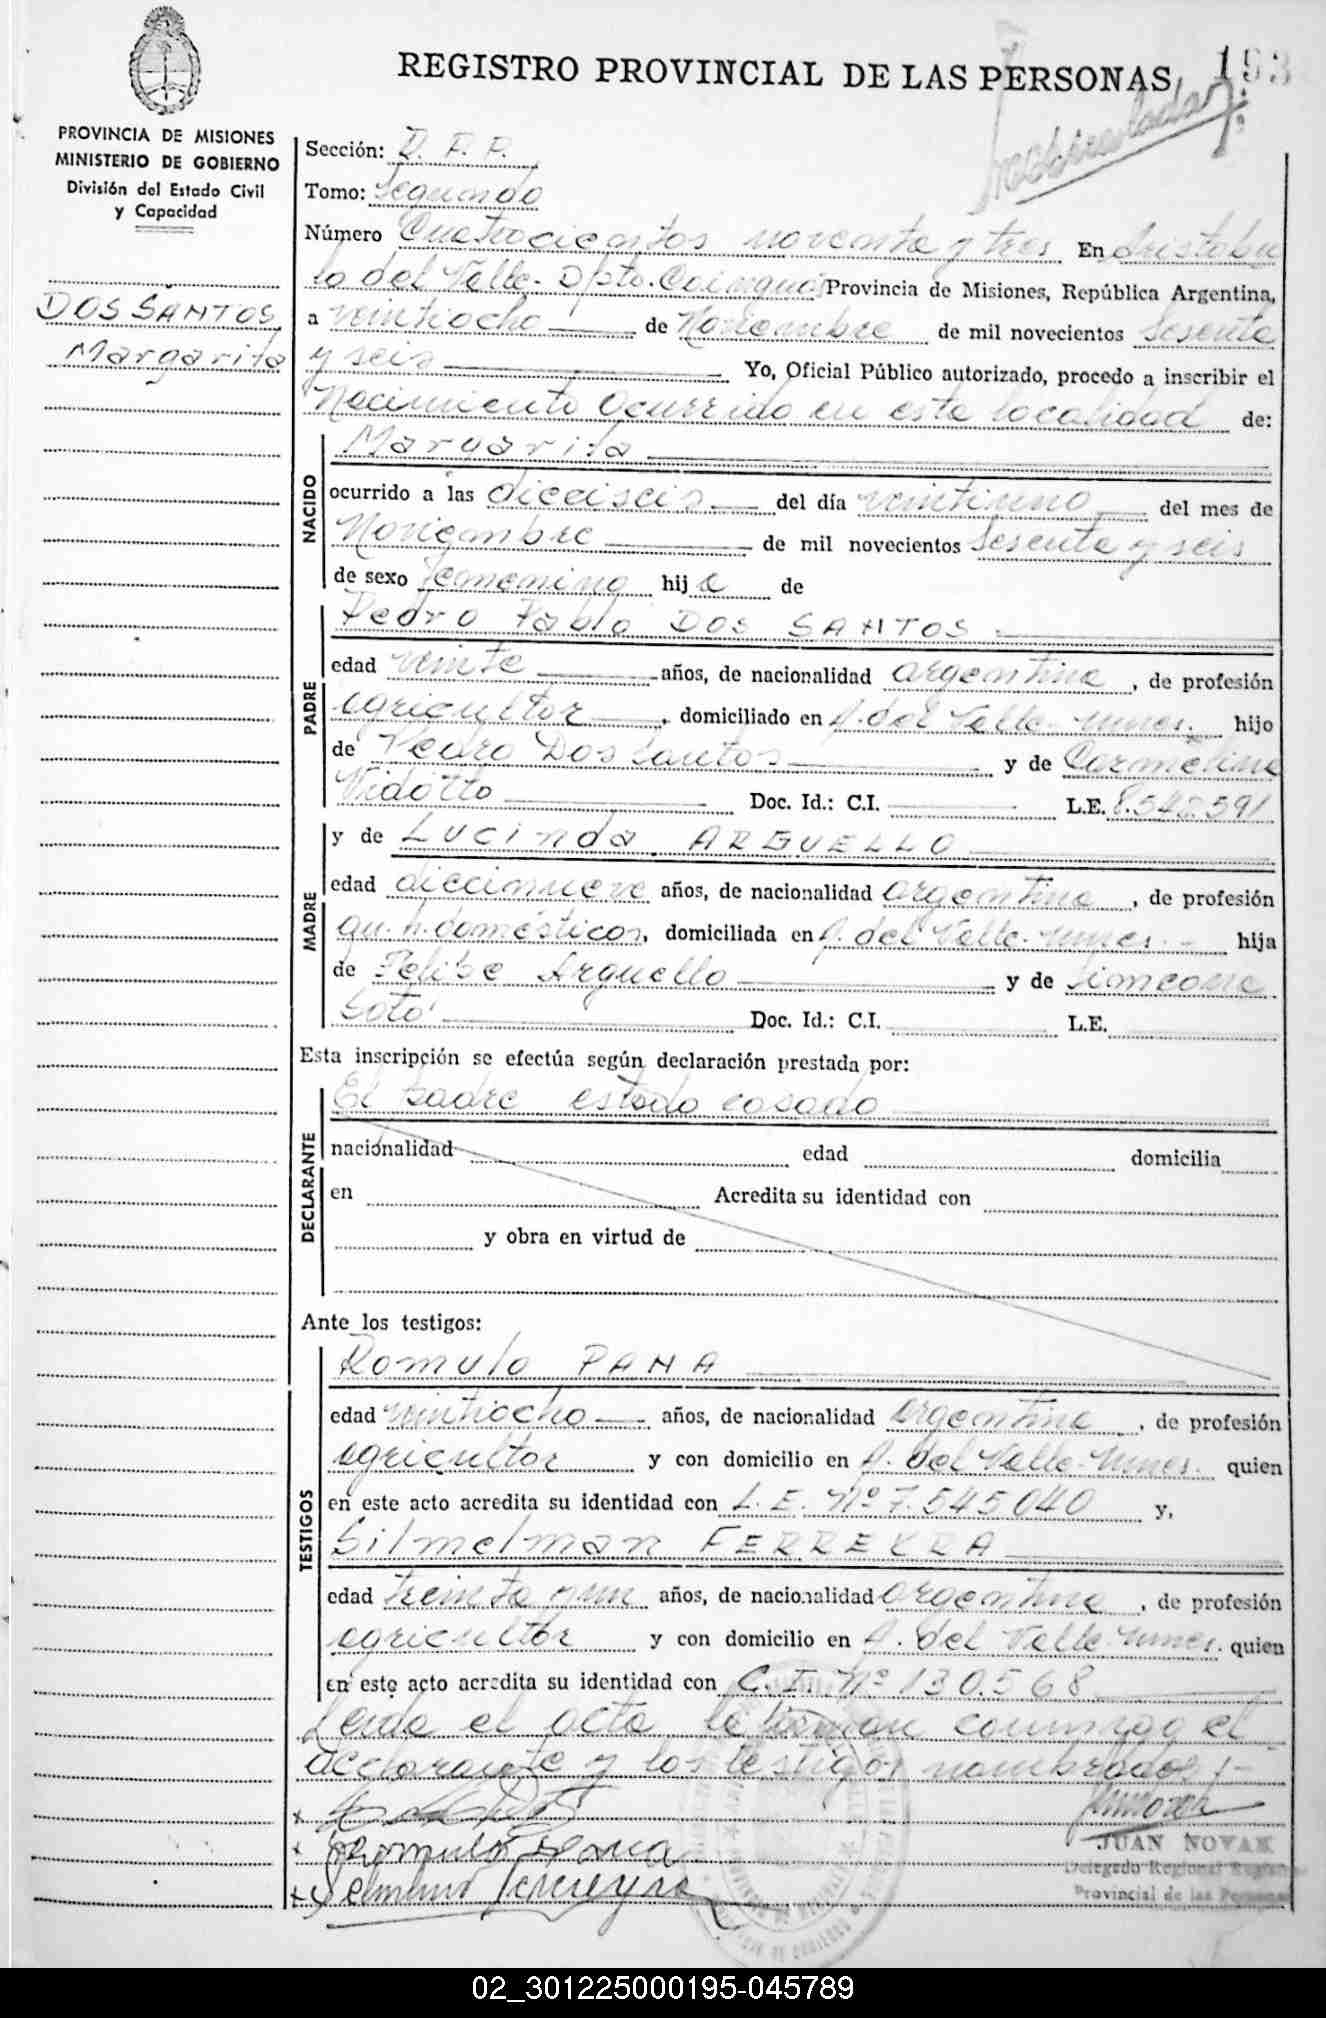 REGISTRO PROVINCIAL DE LAS PERSONAS
193
PROVINCIA DE MISIONES
MINISTERIO DE GOBIERNO
División del Estado Civil
y Capacidad
DOS SANTOS
Margarita
Sección: D. P. P.
Tomo: Segundo
Número Cuatrocientos noventa y tres En Aristobu
lo del Valle - Dpto. Cainguas Provincia de Misiones, República Argentina,
a veintiocho de Noviembre de mil novecientos Sesenta
y seis Yo, Oficial Público autorizado, procedo a inscribir el
Nacimiento Ocurrido en esta localidad de:
NACIDO
Margarita
ocurrido a las dieciseis del día veintiuno del mes de
Noviembre de mil novecientos Sesenta y seis
de sexo femenino hij a de
PADRE
Pedro Pablo DOS SANTOS
edad veinte años, de nacionalidad argentina, de profesión
agricultor, domiciliado en A. del Valle - Mnes. hijo
de Pedro Dos Santos y de Carmeline
Vidotto Doc. Id.: C.I. L.E. 8.542.591
MADRE
y de Lucinda ARGUELLO
edad diecinueve años, de nacionalidad argentina, de profesión
qu. h. domésticos, domiciliada en A. del Valle - Mnes. - hija
de Felipe Arguello y de Simeona
Soto Doc. Id.: C.I. L.E.
Esta inscripción se efectúa según declaración prestada por:
DECLARANTE
El padre estado casado
nacionalidad edad domicilia
en Acredita su identidad con
y obra en virtud de
Ante los testigos:
TESTIGOS
Romulo PANA
edad veintiocho años, de nacionalidad argentina, de profesión
agricultor y con domicilio en A. del Valle - Mnes. quien
en este acto acredita su identidad con L. E. Nº 7.545.040 y,
Silmelman FERREYRA
edad treinta y un años, de nacionalidad argentina, de profesión
agricultor y con domicilio en A. del Valle - Mnes. quien
en este acto acredita su identidad con C. I. Nº 130.568
Leida el acta la firman conmigo el
declarante y los testigos nombrados: -
Romulo Pana
Ferreyra
JUAN NOVAK
Delegado Regional Registro
Provincial de las Personas
02_301225000195-045789